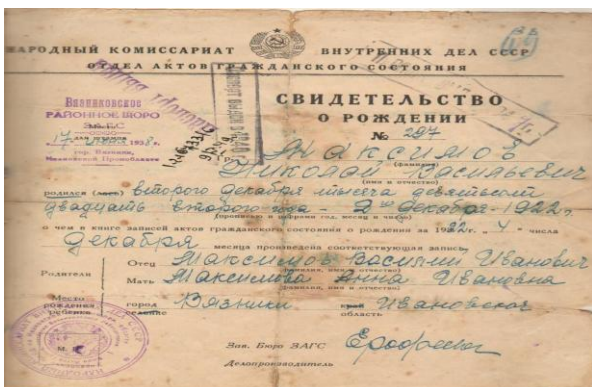 НАРОДНЫЙ КОМИССАРИАТ ВНУТРЕННИХ ДЕЛ СССР
ОТДЕЛ АКТОВ ГРАЖДАНСКОГО СОСТОЯНИЯ
Вязниковское
РАЙОННОЕ БЮРО
ЗАГС
17 1938 г.
гор. Вязники,
СВИДЕТЕЛЬСТВО
О РОЖДЕНИИ
№ 297
Максимов
(фамилия)
Николай Васильевич
(имя и отчество)
родился (лась) второго декабря тысяча девятьсот
двадцать второго года - 2го декабря - 1922 г.
(прописью и цифрами год, месяц и число)
о чем в книге записей актов гражданского состояния о рождении за 1922 г. „4" числа
декабря месяца произведена соответствующая запись
Родители
Отец Максимов Василий Иванович
(фамилия, имя и отчество)
Мать Максимова Анна Ивановна
(фамилия, имя и отчество)
Место рождения ребенка
город Вязники край Ивановской
селение область
М. П.
Зав. Бюро ЗАГС
Делопроизводитель